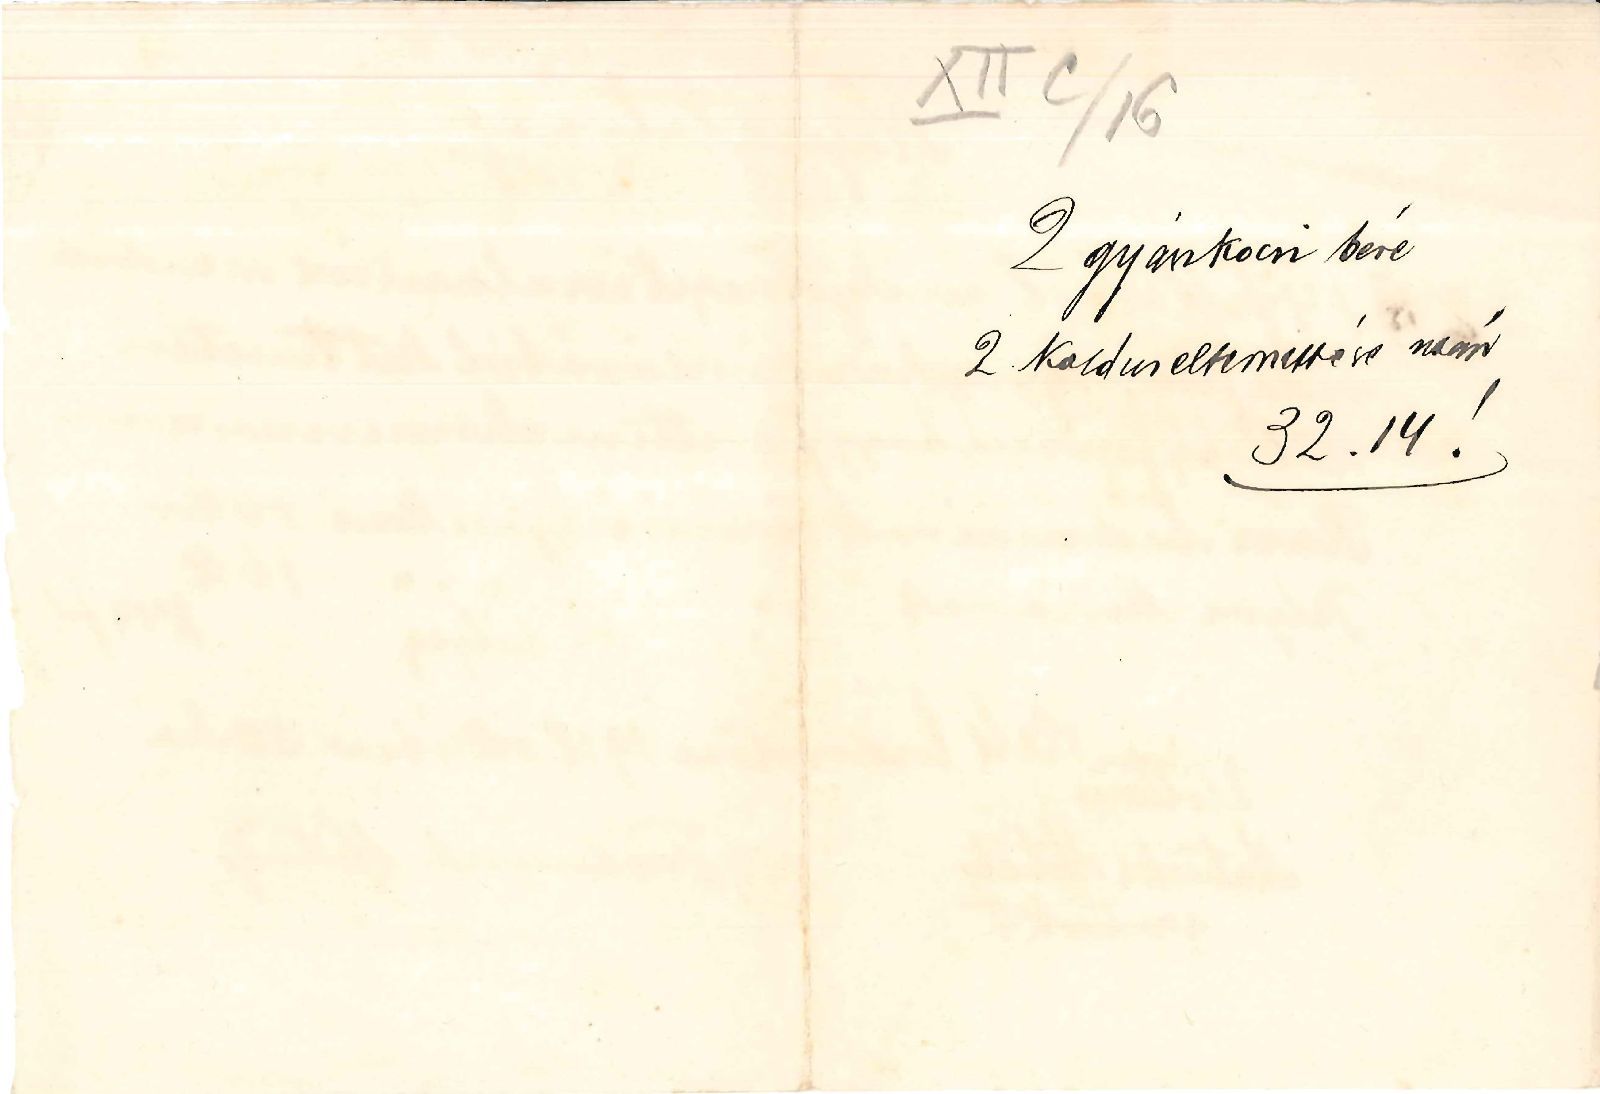 XII c/16
2 gyászkocsi bére
2 koldus eltemetése után
32.14!